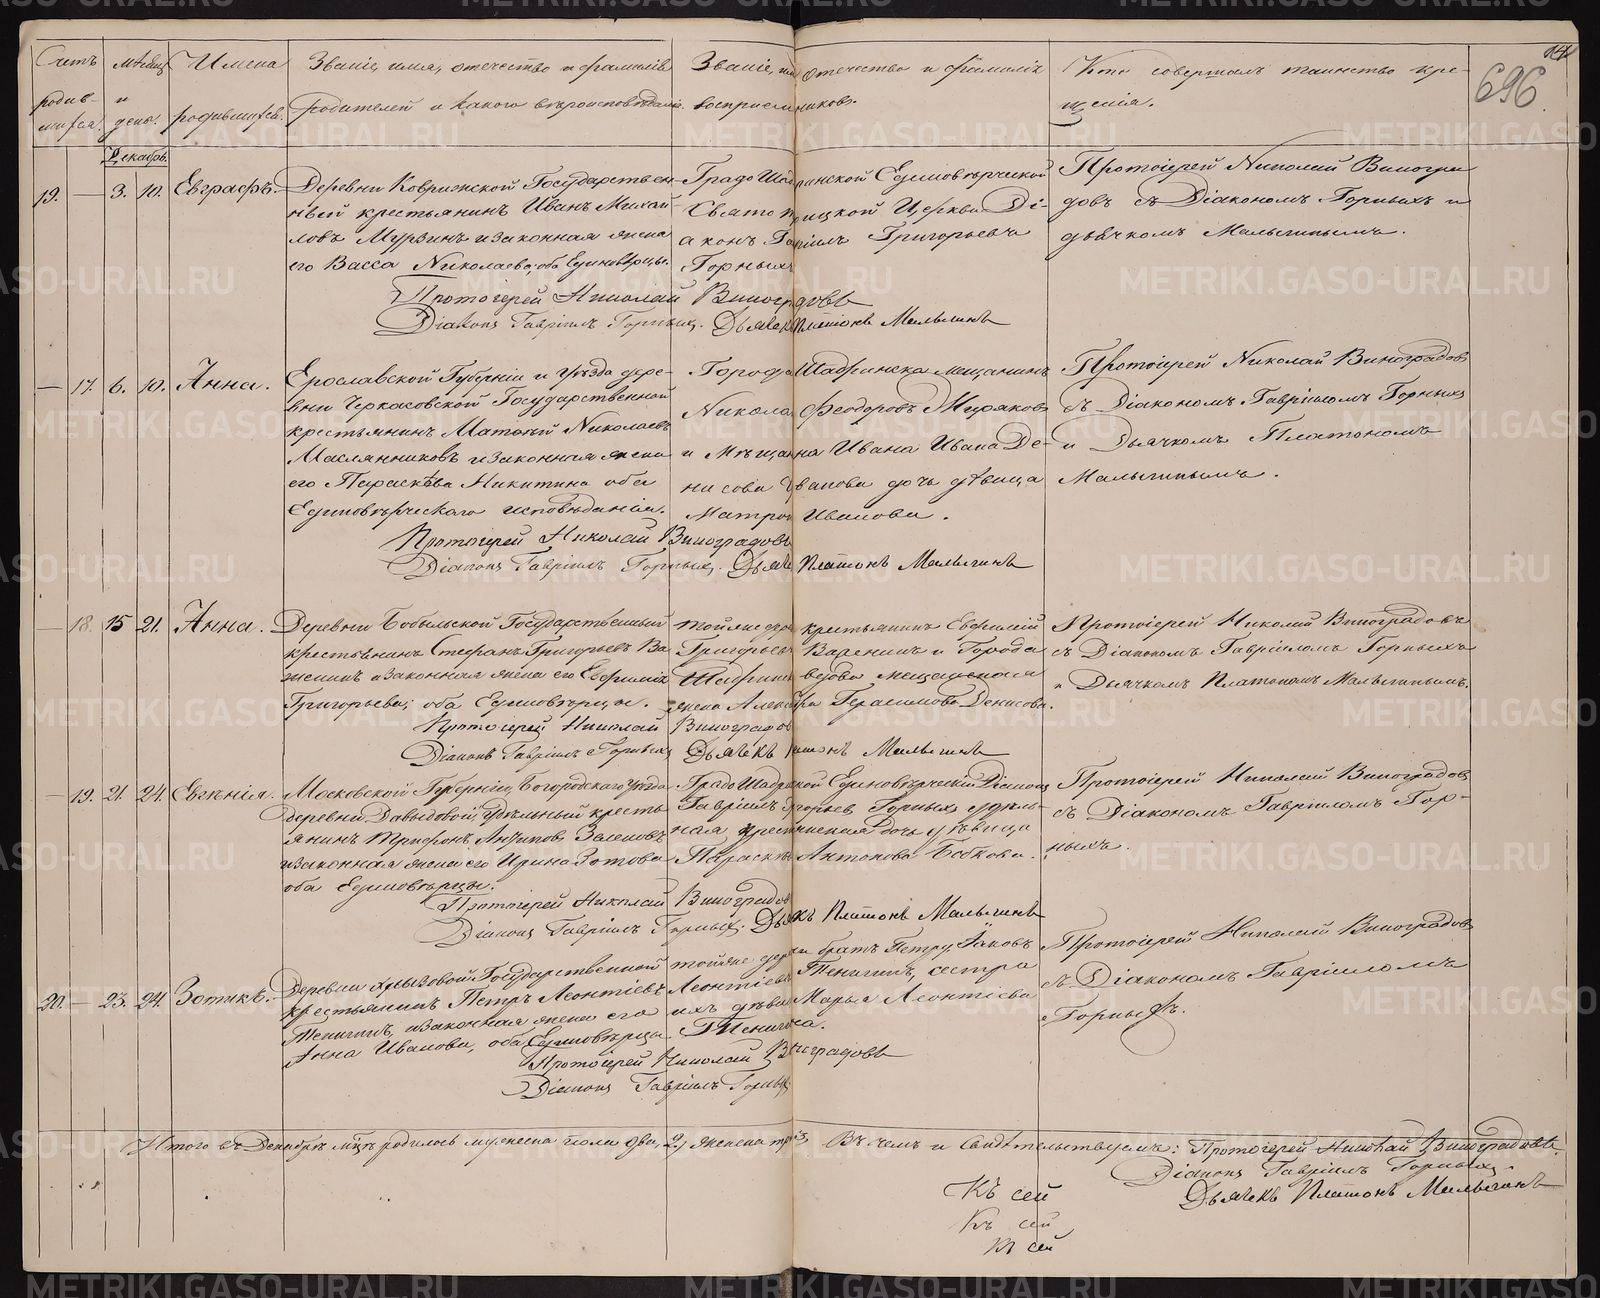 Счетъ родив-шихся.
мѣсяцъ и день.
Имена родившихся.
Званіе, имя, отечество и фамилія родителей и какого вѣроисповѣданія.
Званіе, имя отечество и фамилія воспріемниковъ.
Кто совершалъ таинство кре-
щенія.
696
Декабрь.
19. — 3. 10. Евграфъ.
Деревни Ковригской Государствен-
ный крестьянинъ Иванъ Михай
ловъ Мурзинъ и законная жена
его Васса Николаева, оба Единовѣрцы.
Градо Шадринской Единовѣрческой
Свято Троицкой Церкви Ді-
аконъ Гавріилъ Григорьевъ
Горныхъ
Протоіерей Николай Виногра
довъ съ Діакономъ Горныхъ и
дьячкомъ Малыгинымъ.
Протоіерей Николай Виноградовъ
Діаконъ Гавріилъ Горныхъ. Дьячекъ Платонъ Малыгинъ
— 17. 6. 10. Анна.
Ерославской Губерніи и уѣзда дере-
вни Черкасовской Государственной
крестьянинъ Матвѣй Николаевъ
Маслянниковъ и законная жена
его Параскѣва Никитина оба
Единовѣрческаго исповѣданія.
Города Шадринска мѣщанинъ
Никола Феодоровъ Мидяковъ
и Мѣщанина Ивана Ивана Де-
нисова Иванова дочь дѣвица
Матрона Иванова.
Протоіерей Николай Виноградовъ
съ Діакономъ Гавріиломъ Горныхъ
и Дьячкомъ Платономъ
Малыгинымъ.
Протоіерей Николай Виноградовъ
Діаконъ Гавріилъ Горныхъ. Дьячекъ Платонъ Малыгинъ
— 18. 15 21. Анна.
Деревни Бобыльской Государственный
крестьянинъ Стефанъ Григорьевъ Ва
женинъ и законная жена его Евфимія
Григорьева; оба Единовѣрцы.
той же деревни крестьянинъ Евфимій
Григорьевъ Важенинъ и Города
Шадринска вдова мещанская
жена Александра Герасимова Денисова.
Протоіерей Николай Виноградовъ
съ Діакономъ Гавріиломъ Горныхъ
и Дьячкомъ Платономъ Малыгинымъ.
Протоіерей Николай Виноградовъ
Діаконъ Гавріилъ Горныхъ Дьячекъ Платонъ Малыгинъ
— 19. 21. 24. Евгѣнія.
Московской Губерніи, Богородскаго уѣзда
деревни Давыдовой, Удѣльный кресть
янинъ Трифонъ Антиповъ Зеленовъ
и законная жена его Ирина Зотова
оба Единовѣрцы.
Градо Шадринской Единовѣрческій Діаконъ
Гавріилъ Григорьевъ Горныхъ, удѣль-
ная крестьянская дочь дѣвица
Параскѣва Антонова Бобкова.
Протоіерей Николай Виноградовъ
съ Діакономъ Гавріиломъ Гор-
ныхъ.
Протоіерей Николай Виноградовъ
Діаконъ Гавріилъ Горныхъ. Дьячекъ Платонъ Малыгинъ
20. — 23. 24. Зотикъ.
Деревни Хрызовой Государственной
крестьянинъ Петръ Леонтіевъ
Тенигинъ, и законная жена его
Анна Иванова, оба Единовѣрцы.
той же деревни братъ Петру, Іаковъ
Леонтіевъ Тенигинъ, сестра
ихъ дѣвица Марья Леонтіева
Тенигина.
Протоіерей Николай Виноградовъ
съ Діакономъ Гавріиломъ
Горныхъ.
Протоіерей Николай Виноградовъ
Діаконъ Гавріилъ Горныхъ
Итого въ Декабрѣ мцѣ родилось мужеска пола два, 2, женска три 3. Въ чемъ и свидѣтельствуемъ: Протоіерей Николай Виноградовъ.
Діаконъ Гавріилъ Горныхъ.
Дьячекъ Платонъ Малыгинъ
Къ сей
Къ сей
Къ сей
METRIKI.GASO-URAL.RU